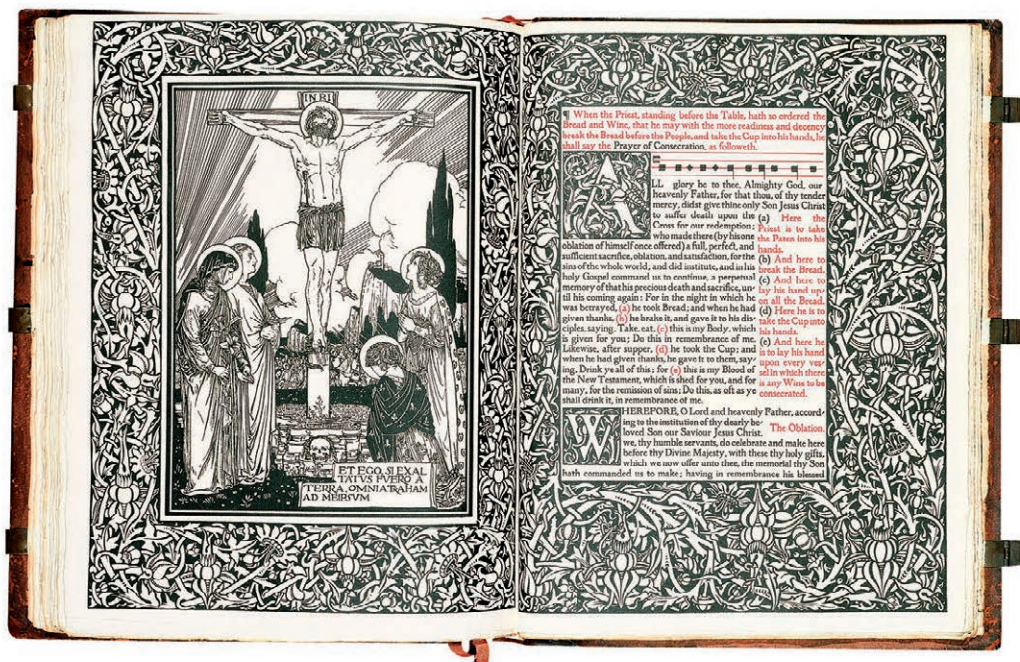 INRI
ET EGO, SI EXAL
TATUS FUERO A
TERRA, OMNIA TRAHAM
AD MEIPSUM
¶ When the Priest, standing before the Table, hath so ordered the
Bread and Wine, that he may with the more readiness and decency
break the Bread before the People, and take the Cup into his hands, he
shall say the Prayer of Consecration, as followeth.
ALL glory be to thee, Almighty God, our
heavenly Father, for that thou, of thy tender
mercy, didst give thine only Son Jesus Christ
to suffer death upon the
Cross for our redemption;
who made there (by his one
oblation of himself once offered) a full, perfect, and
sufficient sacrifice, oblation, and satisfaction, for the
sins of the whole world; and did institute, and in his
holy Gospel command us to continue, a perpetual
memory of that his precious death and sacrifice, un-
til his coming again: For in the night in which he
was betrayed, (a) he took Bread; and when he had
given thanks, (b) he brake it, and gave it to his dis-
ciples, saying, Take, eat, (c) this is my Body, which
is given for you; Do this in remembrance of me.
Likewise, after supper, (d) he took the Cup; and
when he had given thanks, he gave it to them, say-
ing, Drink ye all of this; for (e) this is my Blood of
the New Testament, which is shed for you, and for
many, for the remission of sins; Do this, as oft as ye
shall drink it, in remembrance of me.
(a) Here the
Priest is to take
the Paten into his
hands.
(b) And here to
break the Bread.
(c) And here to
lay his hand up-
on all the Bread.
(d) Here he is to
take the Cup into
his hands.
(e) And here he
is to lay his hand
upon every ves-
sel in which there
is any Wine to be
consecrated.
WHEREFORE, O Lord and heavenly Father, accord-
ing to the institution of thy dearly be-
loved Son our Saviour Jesus Christ,
we, thy humble servants, do celebrate and make here
before thy Divine Majesty, with these thy holy gifts,
which we now offer unto thee, the memorial thy Son
hath commanded us to make; having in remembrance his blessed
The Oblation.